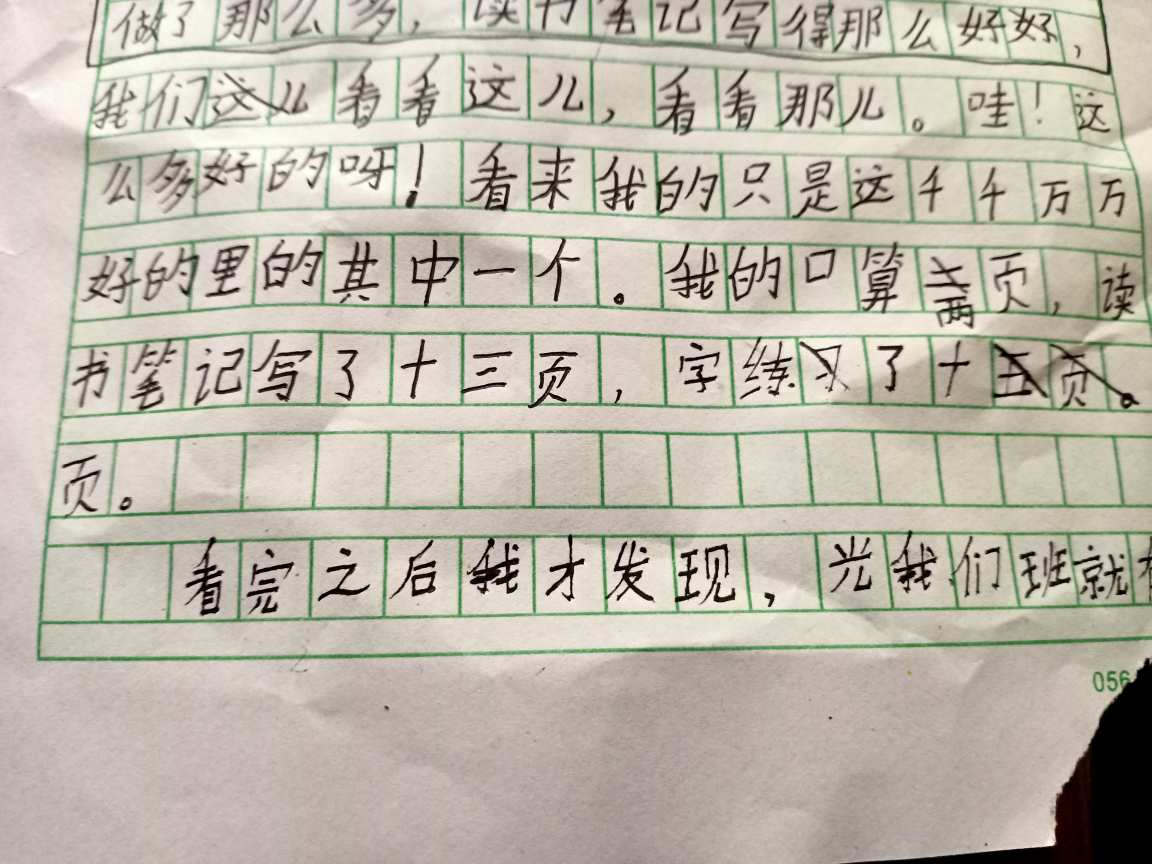 做了那么多，读书笔记写得那么好好，
我们这儿看看这儿，看看那儿。哇！这
么多好的呀！看来我的只是这千千万万
好的里的其中一个。我的口算两页，读
书笔记写了十三页，字练习了十五页。
页。
看完之后我才发现，光我们班就有
056